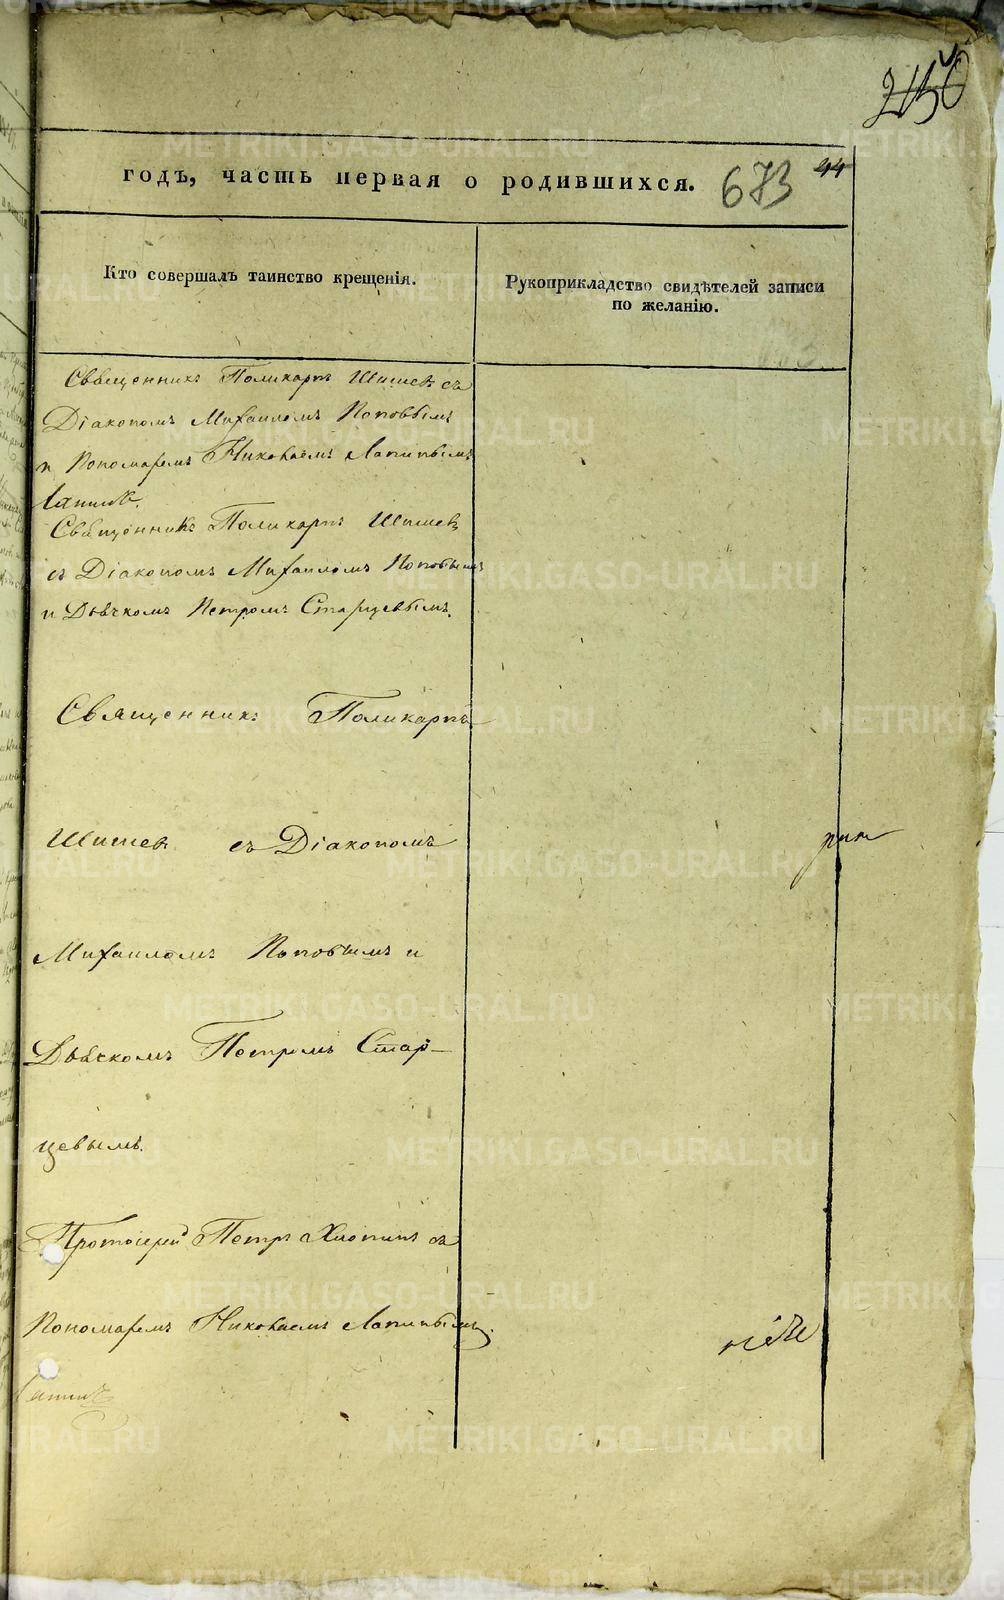 годъ, часть первая о родившихся. 673 44
Кто совершалъ таинство крещенія.
Рукоприкладство свидѣтелей записи
по желанію.
Священникъ Поликарпъ Шишевъ съ
Діакономъ Михаиломъ Поповымъ
и Пономаремъ Николаемъ Лапинымъ
Священникъ Поликарпъ Шишевъ
съ Діакономъ Михаиломъ Поповымъ
и Дьячкомъ Петромъ Старцевымъ.
Священникъ Поликарпъ
Шишевъ съ Діакономъ
Михаиломъ Поповымъ и
Дьячкомъ Петромъ Стар-
цевымъ.
Протоіерей Петръ Хлопинъ съ
Пономаремъ Николаемъ Лапинымъ.
METRIKI.GASO-URAL.RU